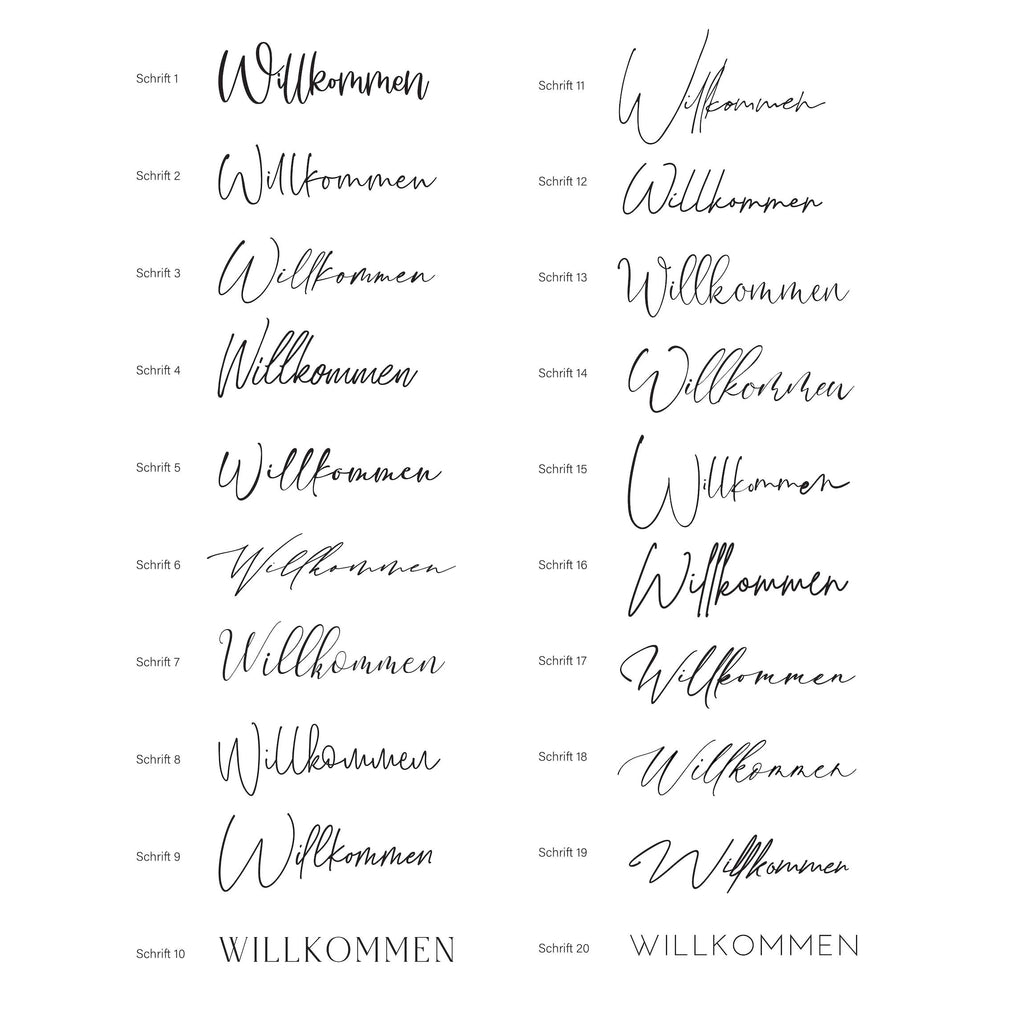 Schrift 1 Willkommen
Schrift 2 Willkommen
Schrift 3 Willkommen
Schrift 4 Willkommen
Schrift 5 Willkommen
Schrift 6 Willkommen
Schrift 7 Willkommen
Schrift 8 Willkommen
Schrift 9 Willkommen
Schrift 10 WILLKOMMEN
Schrift 11 Willkommen
Schrift 12 Willkommen
Schrift 13 Willkommen
Schrift 14 Willkommen
Schrift 15 Willkommen
Schrift 16 Willkommen
Schrift 17 Willkommen
Schrift 18 Willkommen
Schrift 19 Willkommen
Schrift 20 WILLKOMMEN